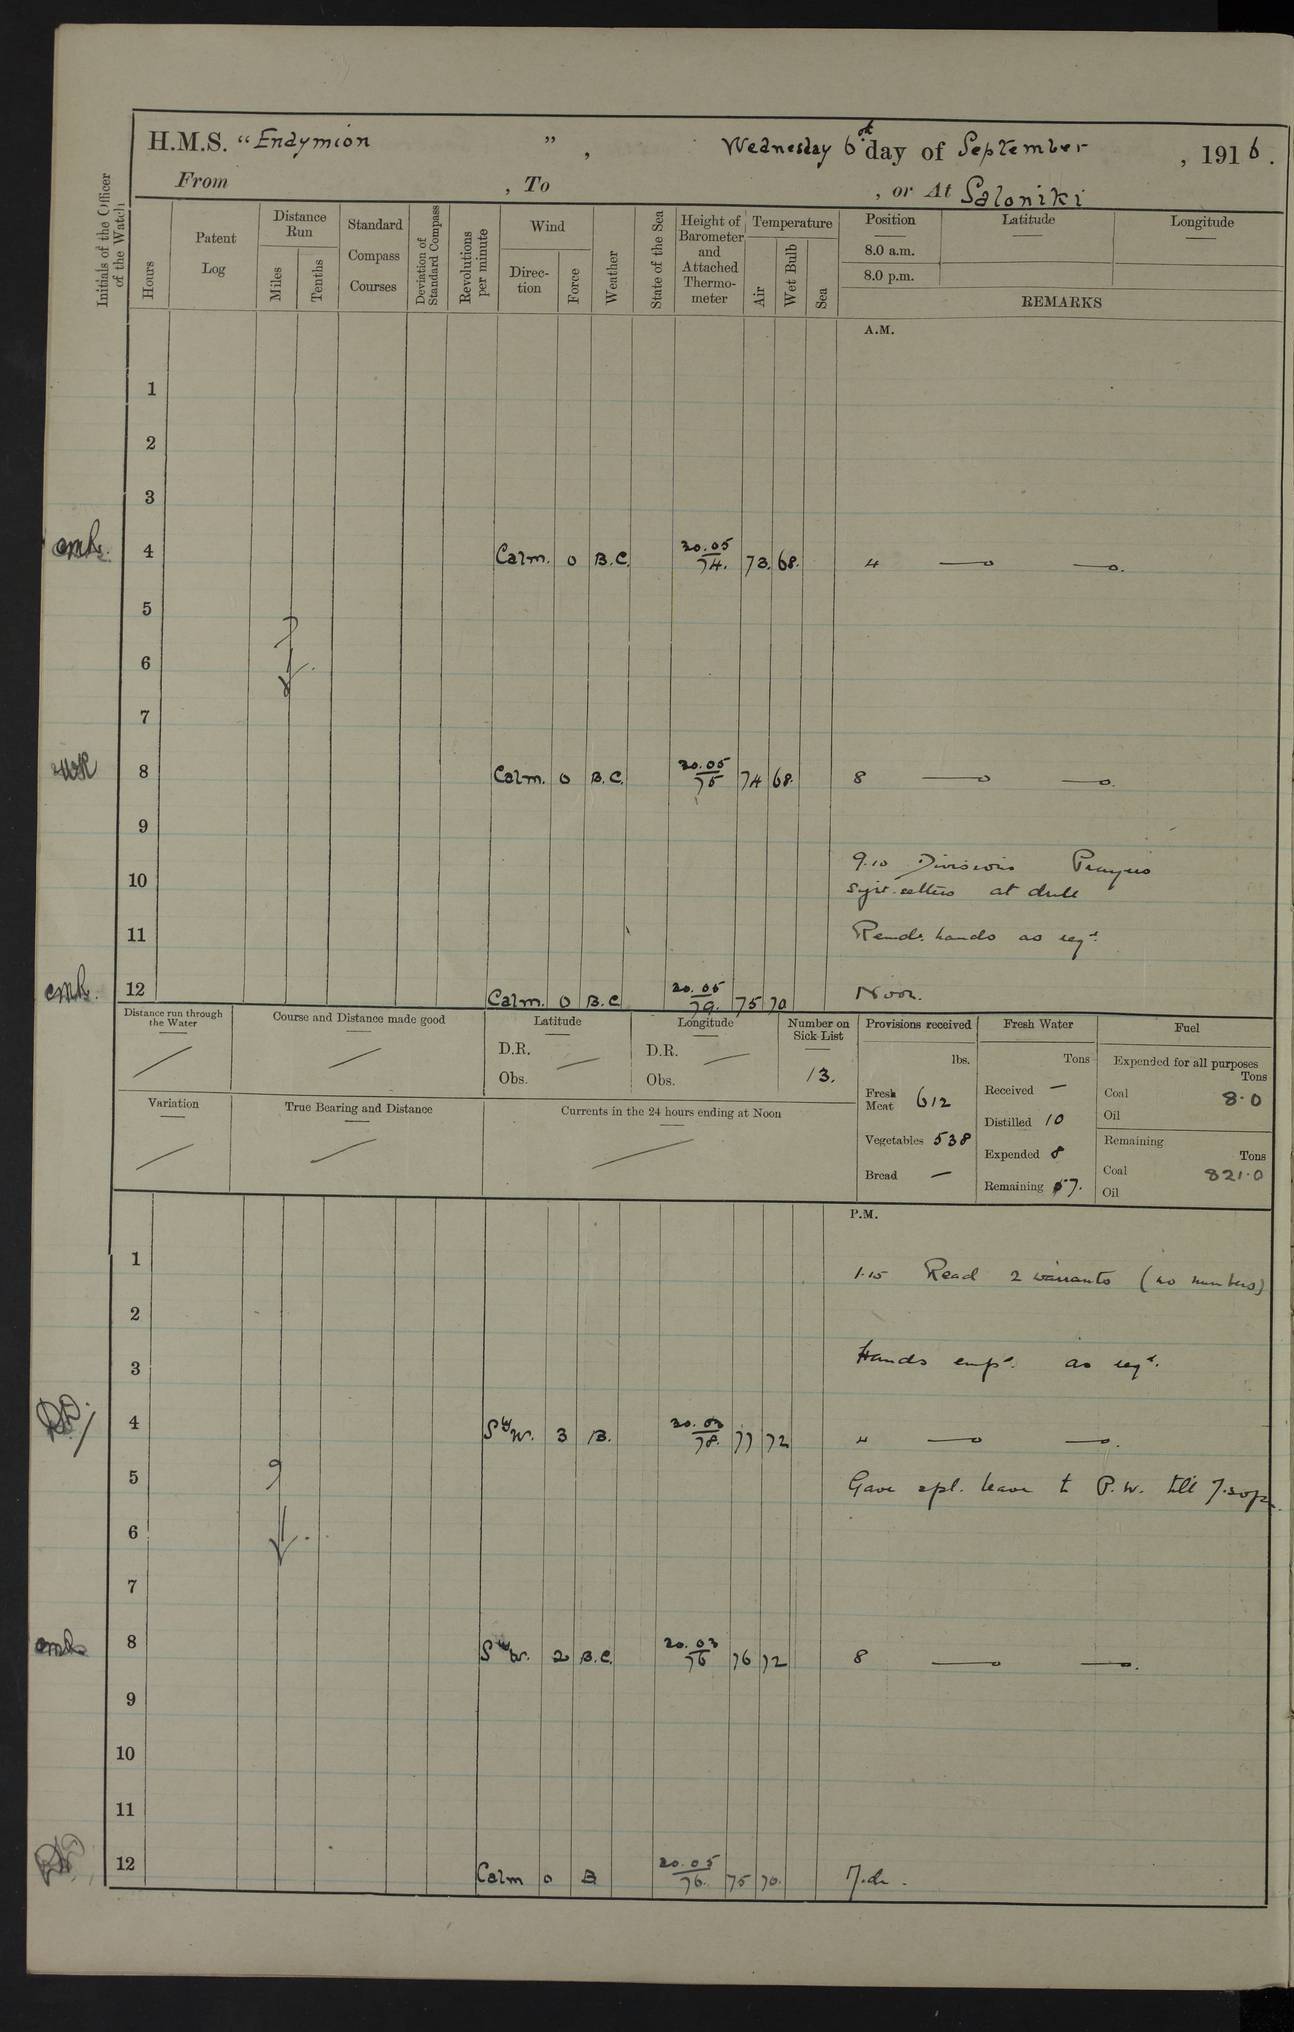 H.M.S. "Endymion", Wednesday 6th day of September, 1916.
From , To , or At Saloniki
Initials of the Officer of the Watch
Hours
Patent Log
Distance Run
Miles
Tenths
Standard Compass Courses
Deviation of Standard Compass
Revolutions per minute
Wind
Direction
Force
Weather
State of the Sea
Height of Barometer and Attached Thermometer
Temperature
Air
Wet Bulb
Sea
Position Latitude Longitude
8.0 a.m.
8.0 p.m.
REMARKS
A.M.
1
2
3
4 Calm. 0 B.C. 30.05 74. 73. 68. 4
5
6
7
8 Calm. 0 B.C. 30.05 75 74 68. 8
9
9.10 Divisions Prayers
10
at drill
11 hands as reqd.
12 Calm. 0 B.C. 30.05 79. 75 70 Noon.
Distance run through the Water
Course and Distance made good
Latitude
D.R.
Obs.
Longitude
D.R.
Obs.
Number on Sick List
13.
Variation
True Bearing and Distance
Currents in the 24 hours ending at Noon
Provisions received
lbs.
Fresh Meat 612
Vegetables 538
Bread —
Fresh Water
Tons
Received —
Distilled 10
Expended 8
Remaining 57.
Fuel
Expended for all purposes
Tons
Coal 8.0
Oil
Remaining
Tons
Coal 821.0
Oil
P.M.
1
1.15 Read 2 warrants (no numbers)
2
3 Hands empd. as reqd.
4 S by W. 3 B. 30.03 78. 77 72 4
5 Gave spl. leave to P.W. till 7.30pm
6
7
8 S by W. 2 B.C. 30.03 76 76 72 8
9
10
11
12 Calm 0 B 30.05 76. 75 70.